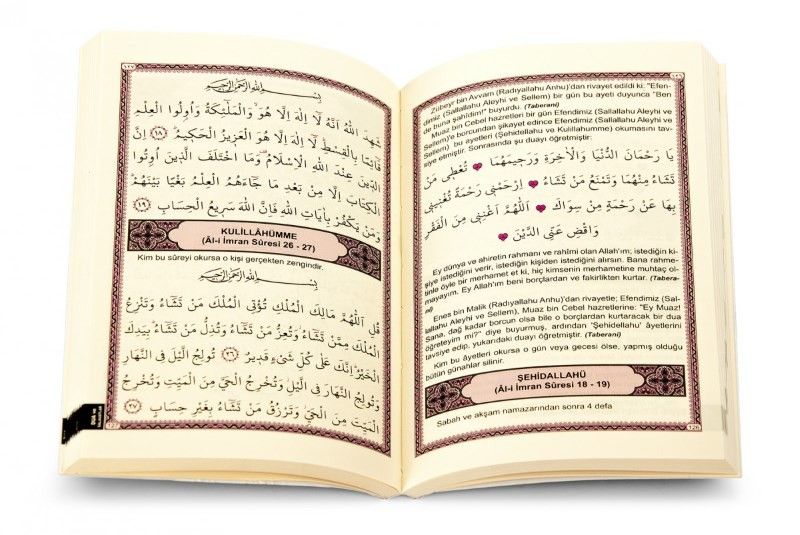 Zübeyr bin Avvam (Radıyallahu Anhu)'dan rivayet edildi ki: "Efen-
dimiz (Sallallahu Aleyhi ve Sellem) bir gün bu ayeti duyunca "Ben
de buna şahîdim!" buyurdu. (Taberani)
Muaz bin Cebel hazretleri bir gün Efendimiz (Sallallahu Aleyhi ve
Sellem)'e borcundan şikayet edince Efendimiz (Sallallahu Aleyhi ve
Sellem) bu ayetleri (Şehidellahu ve Kulillahumme) okumasını tav-
siye etmiştir. Sonrasında şu duayı öğretmiştir:
يَا رَحْمَانَ الدُّنْيَا وَالْاٰخِرَةِ وَرَحِيمَهُمَا تُعْطِى مَنْ
تَشَاءُ مِنْهُمَا وَتَمْنَعُ مَنْ تَشَاءُ اِرْحَمْنِى رَحْمَةً تُغْنِينِى
بِهَا عَنْ رَحْمَةِ مِنْ سِوَاكَ اَللّٰهُمَّ اَغْنِنِى مِنَ الْفَقْرِ
وَاقْضِ عَنِّى الدَّيْنَ
Ey dünya ve ahiretin rahmanı ve rahîmi olan Allah'ım; istediğin ki-
şiye istediğini verir, istediğin kişiden istediğini alırsın. Bana rahme-
tinle öyle bir merhamet et ki, hiç kimsenin merhametine muhtaç ol-
mayayım. Ey Allah'ım beni borçlardan ve fakirlikten kurtar. (Tabera-
ni)
Enes bin Malik (Radıyallahu Anhu)'dan rivayetle; Efendimiz (Sal-
lallahu Aleyhi ve Sellem), Muaz bin Cebel hazretlerine: "Ey Muaz!
Sana, dağ kadar borcun olsa bile o borçlardan kurtaracak bir dua
öğreteyim mi?" diye buyurmuş, ardından 'Şehidellahu' âyetlerini
tavsiye edip, yukarıdaki duayı öğretmiştir. (Taberani)
Kim bu âyetleri okursa o gün veya gecesi ölse, yapmış olduğu
bütün günahlar silinir.
ŞEHİDALLAHÜ
(Âl-i İmran Sûresi 18 - 19)
Sabah ve akşam namazarından sonra 4 defa
126
بِسْمِ اللهِ الرَّحْمٰنِ الرَّحِيمِ
شَهِدَ اللهُ اَنَّهُ لَا اِلٰهَ اِلَّا هُوَ وَالْمَلٰئِكَةُ وَاُولُوا الْعِلْمِ
قَائِمًا بِالْقِسْطِ لَا اِلٰهَ اِلَّا هُوَ الْعَزِيزُ الْحَكِيمُ ﴿١٨﴾ اِنَّ
الدّينَ عِنْدَ اللهِ الْاِسْلَامُ وَمَا اخْتَلَفَ الَّذينَ اُوتُوا
الْكِتَابَ اِلَّا مِنْ بَعْدِ مَا جَاءَهُمُ الْعِلْمُ بَغْيًا بَيْنَهُمْ
وَمَنْ يَكْفُرْ بِاٰيَاتِ اللهِ فَاِنَّ اللهَ سَرِيعُ الْحِسَابِ ﴿١٩﴾
KULİLLÂHÜMME
(Âl-i İmran Sûresi 26 - 27)
Kim bu sûreyi okursa o kişi gerçekten zengindir.
بِسْمِ اللهِ الرَّحْمٰنِ الرَّحِيمِ
قُلِ اللّٰهُمَّ مَالِكَ الْمُلْكِ تُؤْتِى الْمُلْكَ مَنْ تَشَاءُ وَتَنْزِعُ
الْمُلْكَ مِمَّنْ تَشَاءُ وَتُعِزُّ مَنْ تَشَاءُ وَتُذِلُّ مَنْ تَشَاءُ بِيَدِكَ
الْخَيْرُ اِنَّكَ عَلٰى كُلِّ شَىْءٍ قَديرٌ ﴿٢٦﴾ تُولِجُ الَّيْلَ فِى النَّهَارِ
وَتُولِجُ النَّهَارَ فِى الَّيْلِ وَتُخْرِجُ الْحَىَّ مِنَ الْمَيِّتِ وَتُخْرِجُ
الْمَيِّتَ مِنَ الْحَىِّ وَتَرْزُقُ مَنْ تَشَاءُ بِغَيْرِ حِسَابٍ ﴿٢٧﴾
127